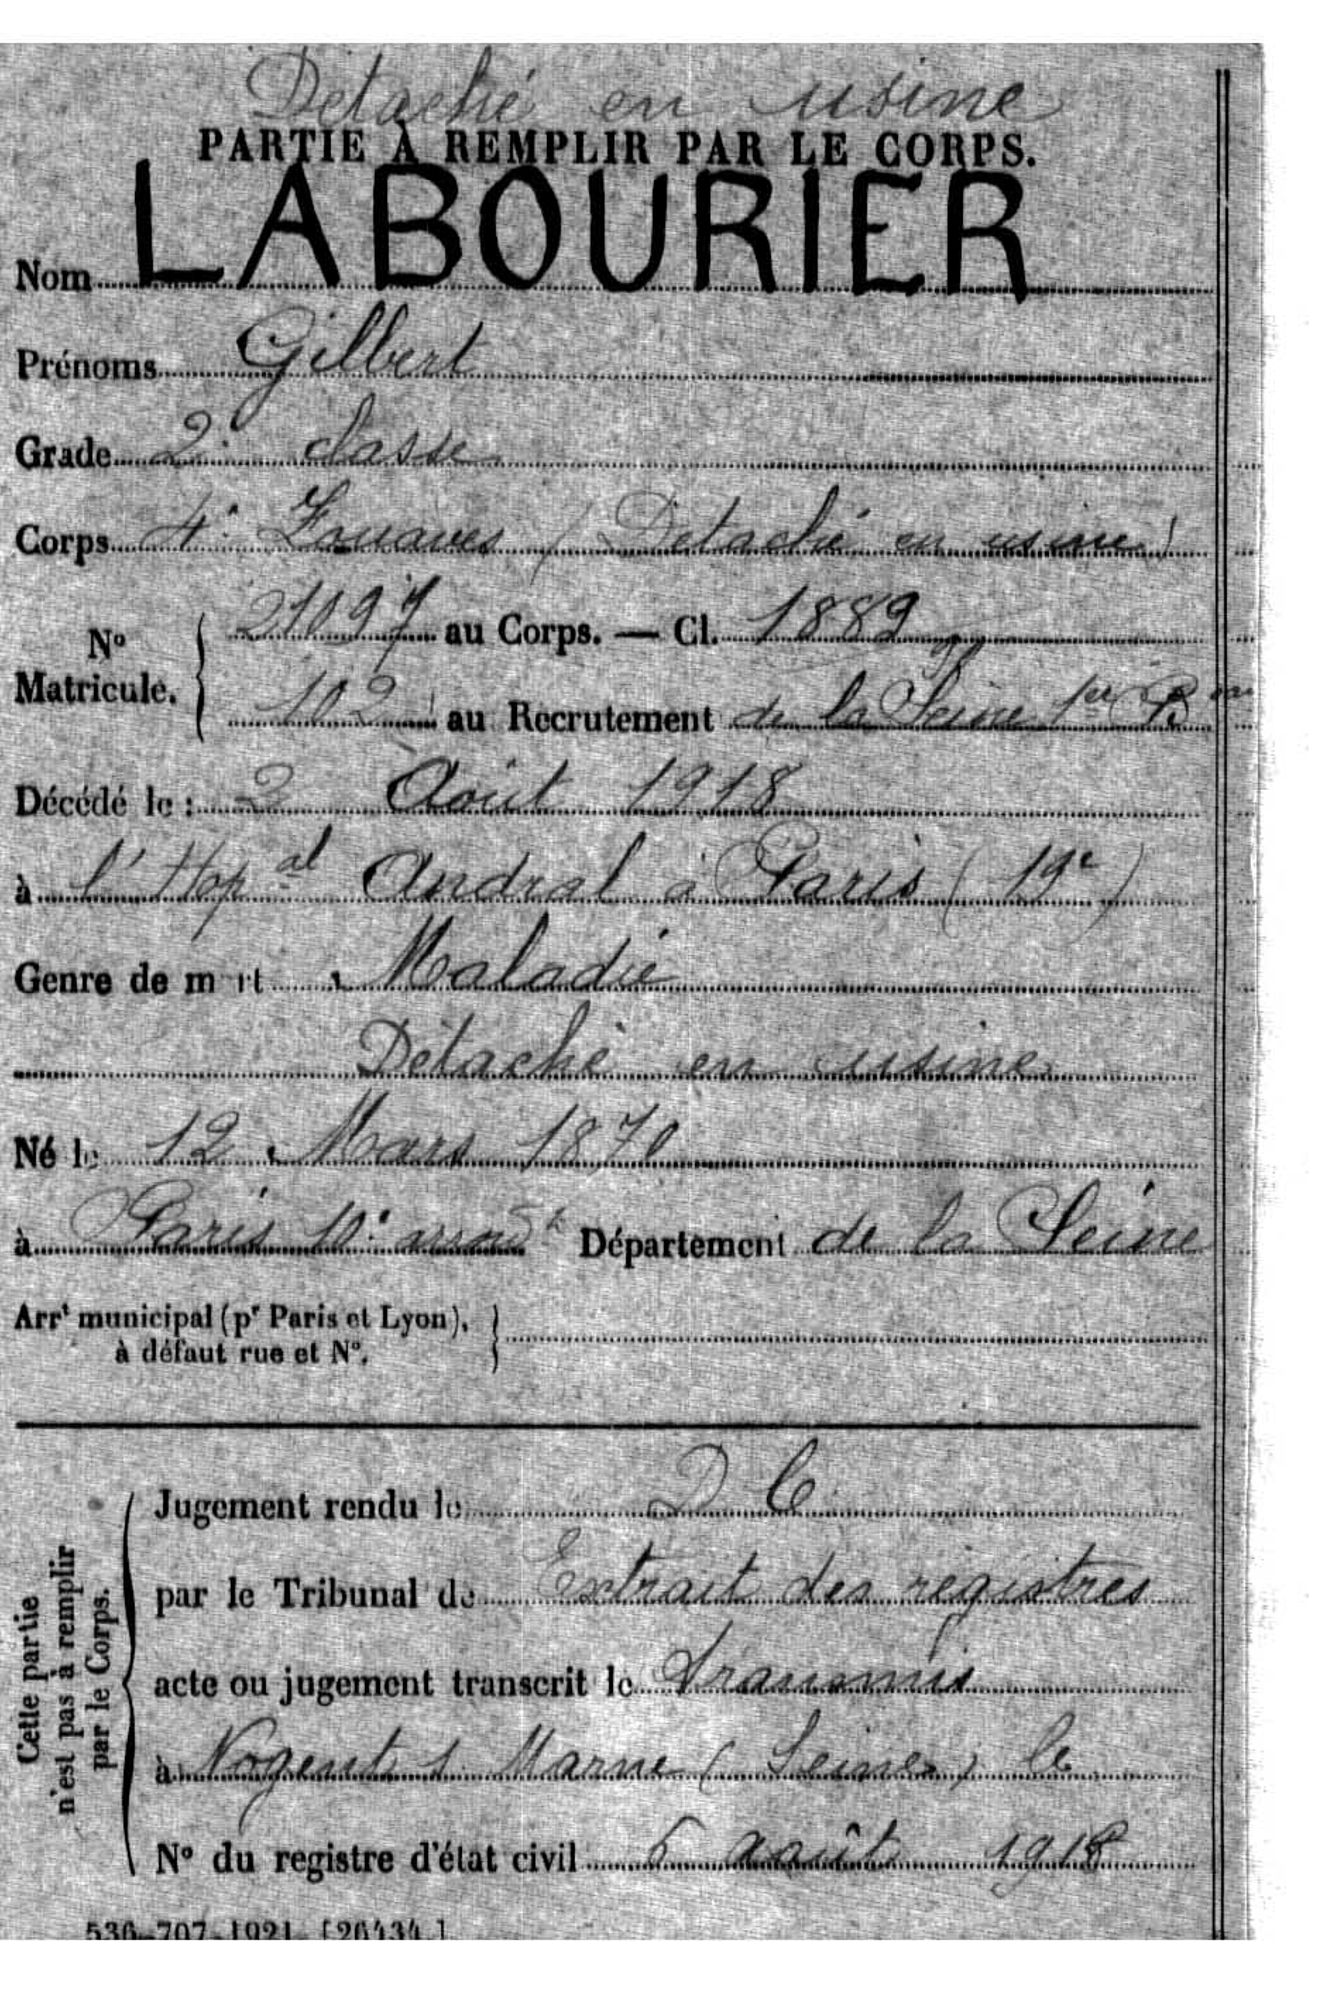 Détaché en usine
PARTIE À REMPLIR PAR LE CORPS.
Nom LABOURIER
Prénoms Gilbert
Grade 2e classe
Corps 4e Zouaves (Détaché en usine)
No Matricule. { 21097 au Corps. — Cl. 1889
102 au Recrutement de la Seine 1er Bau
Décédé le : 2 Août 1918
à l'Hopal Andral à Paris (19e)
Genre de mort Maladie
Détaché en usine
Né le 12 Mars 1870
à Paris 10e arrondt Département de la Seine
Arrt municipal (pr Paris et Lyon), à défaut rue et No. }
Cette partie n'est pas à remplir par le Corps. {
Jugement rendu le D C
par le Tribunal de Extrait des registres
acte ou jugement transcrit le transmis
à Nogent s Marne (Seine) le
No du registre d'état civil 6 août 1918
536-707-1921. [26434.]